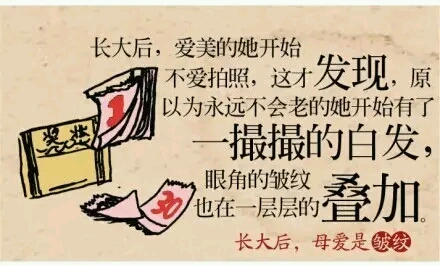 长大后，爱美的她开始
不爱拍照，这才发现，原
以为永远不会老的她开始有了
一撮撮的白发，
眼角的皱纹
也在一层层的叠加。
长大后，母爱是皱纹
1
奖状
30